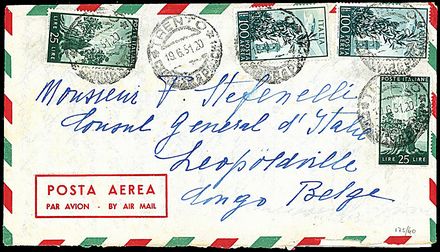 25 LIRE
TRENTO
19.6.51.20
100
100
POSTE ITALIANE
LIRE 25 LIRE
Monsieur F. Stefenelli
Consul General d'Italie
Leopoldville
Congo Belge
POSTA AEREA
PAR AVION - BY AIR MAIL
175/60